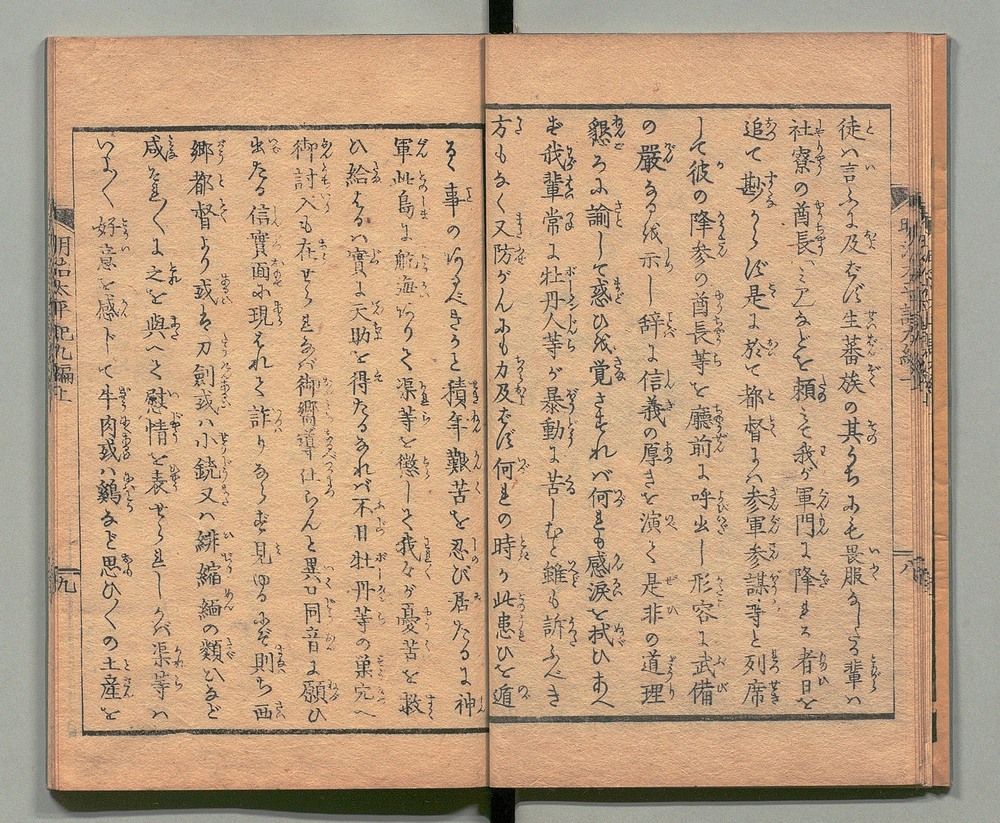 徒ハ言ふに及ばず生蕃族の其うちにも畏服なしたる輩ハ
社寮の酋長ミアなどを頼ミて我が軍門に降れる者日を
追て尠からず是に於て都督にハ参軍参謀等と列席
して彼の降参の酋長等を廳前に呼出し形容に武備
の嚴なるを示し辞に信義の厚きを演て是非の道理
懇ろに諭して惑ひを覚さすれバ何れも感涙を拭ひあへ
ず我輩常に牡丹人等が暴動に苦しむと雖も訴ふべき
方もなく又防がんにも力及ばず何れの時か此患ひを遁
るゝ事のあるべきかと積年艱苦を忍び居たるに神
軍此島に航海ありて渠等を懲して我々が憂苦を救
ひ給はるハ實に天助を得たるなれバ不日牡丹等の巣穴へ
御討入も在せられなバ御嚮導仕らんと異口同音に願ひ
出たる信實面に現はれて詐りならず見ゆるにぞ則ち西
郷都督より或は刀劍或ハ小銃又ハ緋縮緬の類ひなど
咸それ〳〵に之を與へて慰情を表せられしかバ渠等ハ
いよ〳〵好意を感じて牛肉或ハ鷄など思ひ〳〵の土産を
明治太平記九編上
八
明治太平記九編上
九